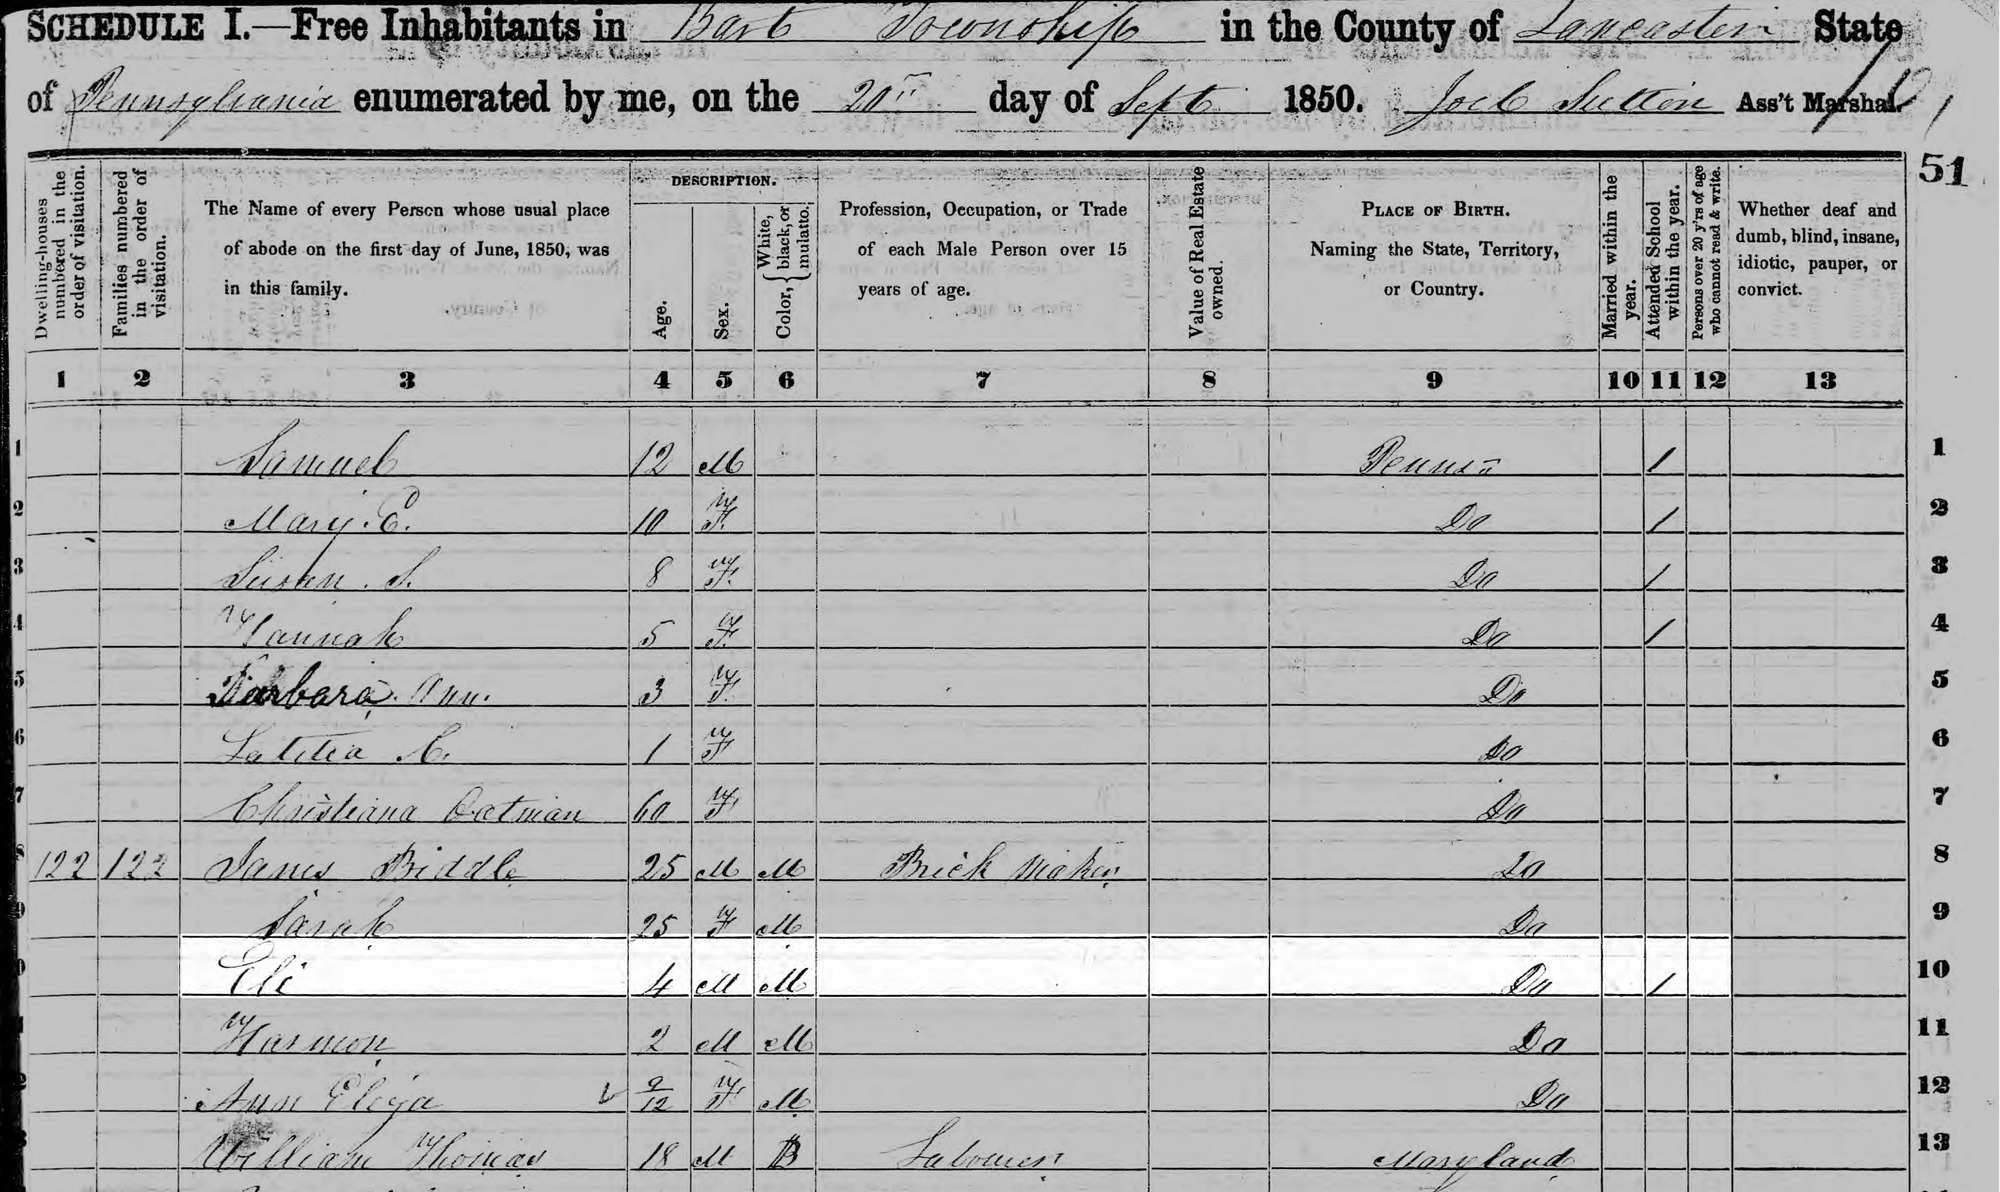 SCHEDULE I.—Free Inhabitants in Bart Township in the County of Lancaster State
of Pennsylvania enumerated by me, on the 20th day of Sept 1850. Joel Sutton Ass't Marshal.
51
Dwelling-houses numbered in the order of visitation.
Families numbered in the order of visitation.
The Name of every Person whose usual place of abode on the first day of June, 1850, was in this family.
DESCRIPTION.
Age.
Sex.
Color, { White, black, or mulatto. }
Profession, Occupation, or Trade of each Male Person over 15 years of age.
Value of Real Estate owned.
PLACE OF BIRTH.
Naming the State, Territory, or Country.
Married within the year.
Attended School within the year.
Persons over 20 y'rs of age who cannot read & write.
Whether deaf and dumb, blind, insane, idiotic, pauper, or convict.
1 2 3 4 5 6 7 8 9 10 11 12 13
1 Samuel 12 M Pennsa 1 1
2 Mary. E. 10 F. Do 1 2
3 Susan. S. 8 F. Do 1 3
4 Hannah 5 F. Do 1 4
5 Barbara. Ann. 3 F. Do 5
6 Latitia C. 1 F Do 6
7 Christiana Oatman 60 F Do 7
8 122 122 James Biddle 25 M M Brick Maker Do 8
9 Sarah 25 F M Do 9
0 Eli 4 M M Do 1 10
1 Harmon 2 M M Do 11
2 Ann Eliza 9/12 F M Do 12
3 William Thomas 18 M B Labourer Maryland 13